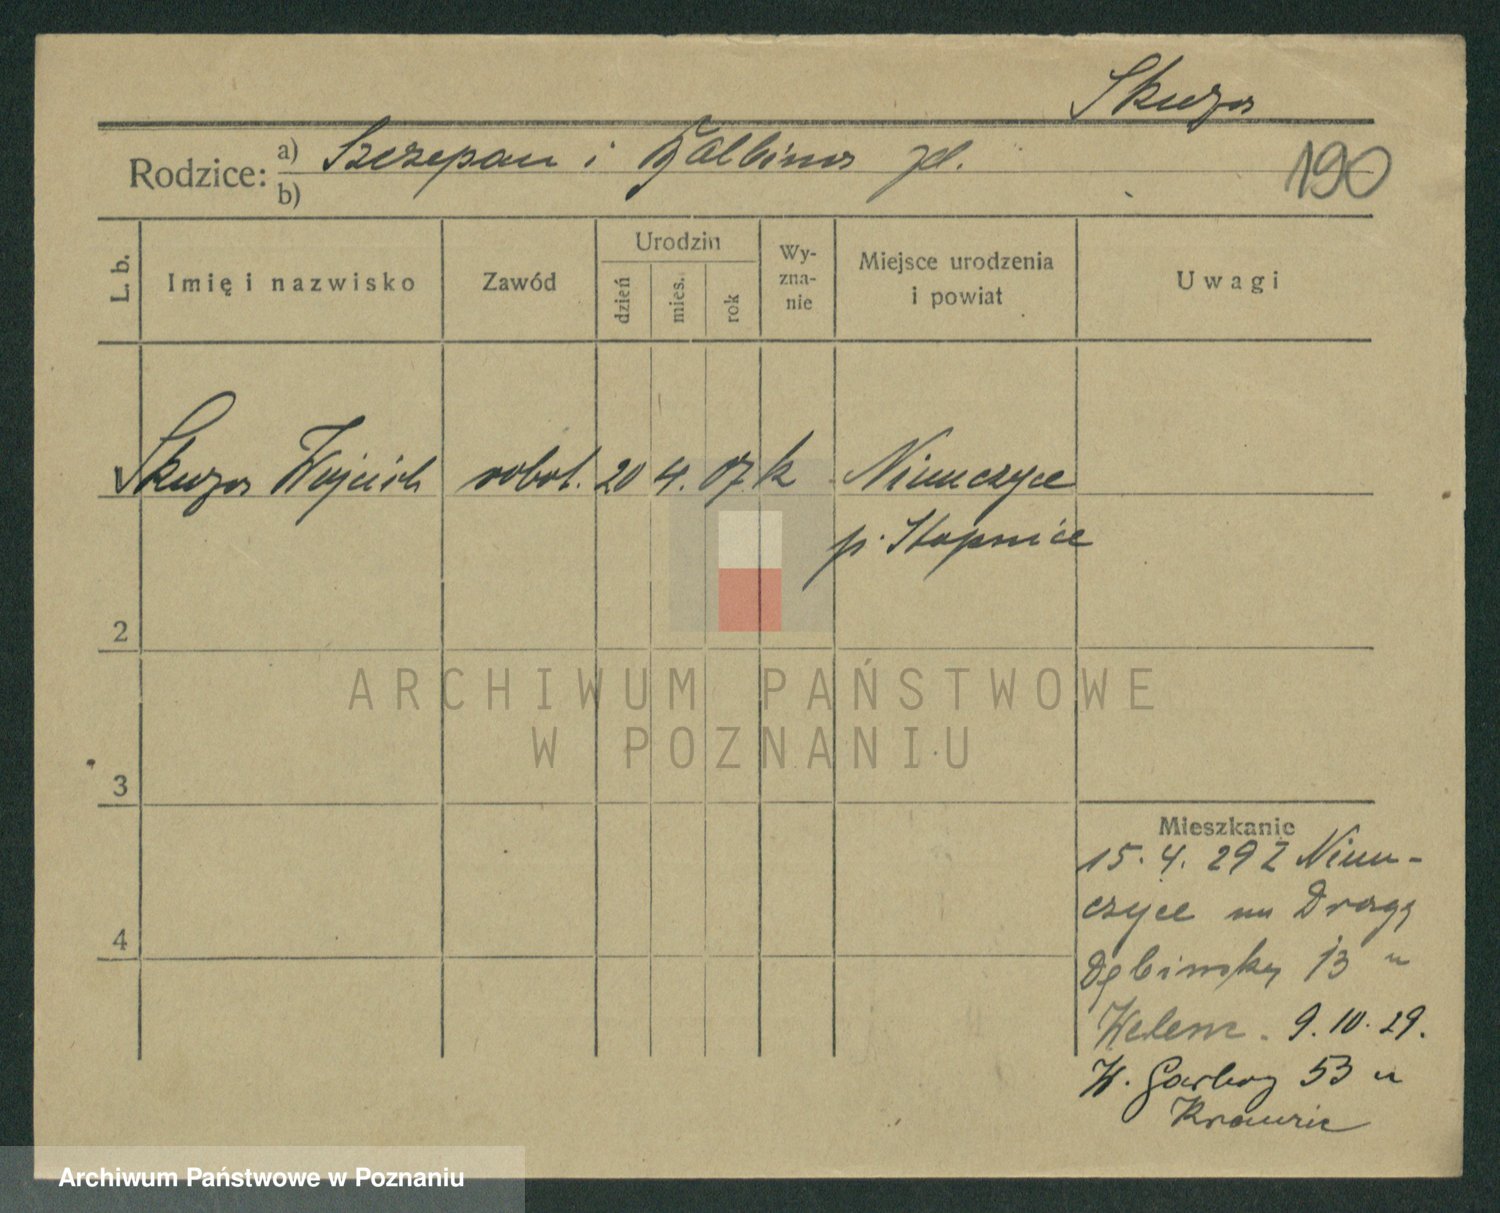 Skuza
Rodzice: a) Szczepan i Balbina zd.
b)
190
L. b.
Imię i nazwisko
Zawód
Urodzin
dzień
mies.
rok
Wy-
zna-
nie
Miejsce urodzenia
i powiat
Uwagi
1 Skuza Wojciech robot. 20 4. 07 k Niemczyce
p. Stopnice
2
3
4
Mieszkanie
15. 4. 29 z Niem-
czyce na Drogę
Dębińską 13 u
9. 10. 29.
W. Garbary 53 u
ARCHIWUM PAŃSTWOWE
W POZNANIU
Archiwum Państwowe w Poznaniu